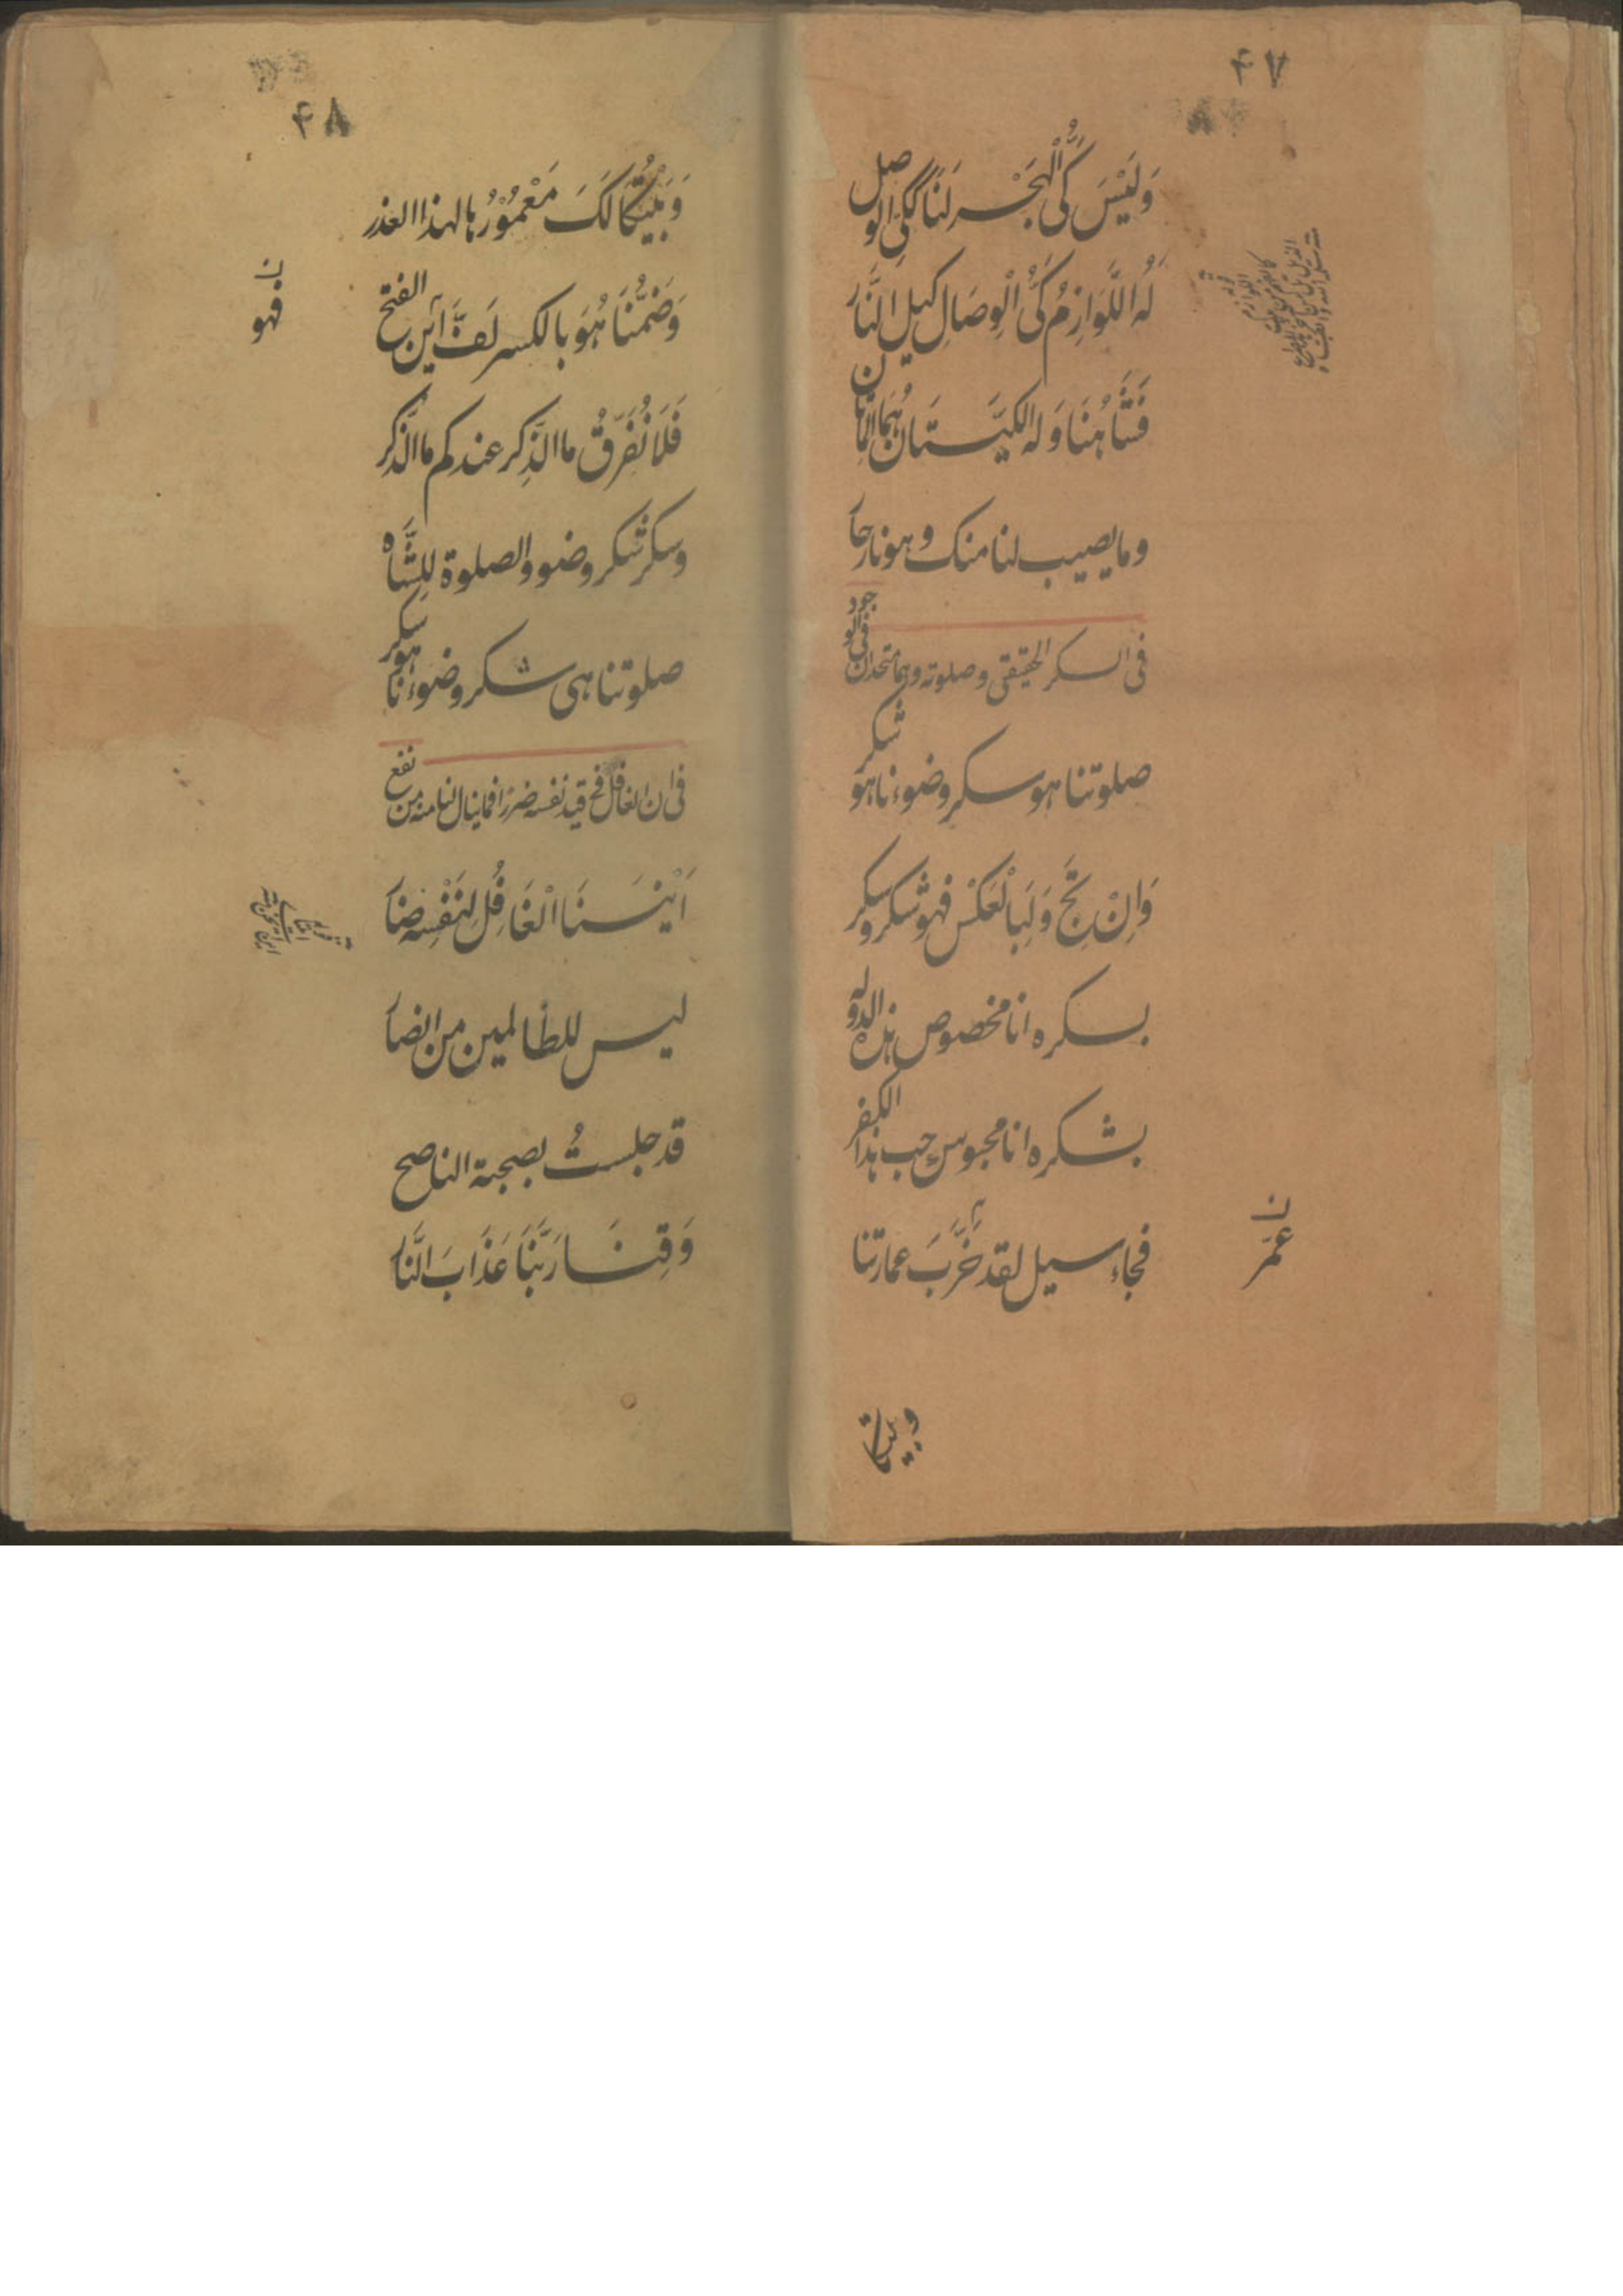 ۴۷
وَلَيْسَ كَيُّ الْهَجْرِ لَنَا كَكَيِّ الوصل
لَهُ اللَّوَازِمُ كَيُّ الْوِصَالِ كيل النَّار
فَتًّا هُنَا وَلَهُ الكيَّتَان هُمَا
وما يصيب لنا منك وهو نار حا
فى السكر الحقيقى وصلوته وهما متحدان فى الوجود
صلوتنا هو سكر وضوءنا هو شكر
وَاِنْ تَجَّ وَلَبِالْعَكْس فهو شكر وسكر
بسكره انا مخصوص هذه الدوله
بشكره انا محبوس حب هذا الكفر
فجاء سيل لقد خَرَّبَ عمارتنا
ن
عمّر
وبيتكا
۴۸
وَبَيْتُكَا لَكَ مَعْمُوْرُ بها لهذا العذر
وَضَمُّنَا هُوَ بالكسر لَفَّةً اَين الفتح
ن
فهو
فَلَا نُفَرِّقُ ما الذِّكر عندكم ما الذَّكر
وسكر شكر وضو والصلوة لِلشَّاه
صلوتنا هى شكر وضوءنا هو سكر
فى ان الغافل فى قيد نفسه ضررا فما ينال لنا منه من نفع
اَيْنَسَنَا الْغَافِلُ لِنَفْسِه ضا
ليس للظالمين من انصا
قد جلستُ بصحبة الناصح
وَقِنَا رَبَّنَا عَذَابَ النَّا